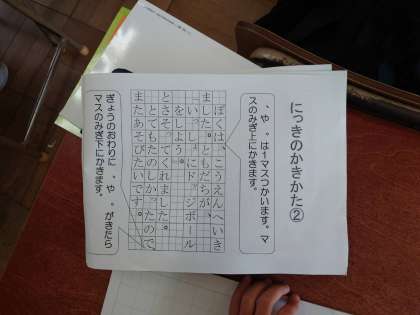 にっきのかきかた②
、や。は1マスつかいます。マ
スのみぎ上にかきます。
ぼくは、こうえんへいき
ました。ともだちが、
「いっしょにドッジボール
をしよう。」
とさそってくれました。
とてもたのしかったので、
またあそびたいです。
ぎょうのおわりに、や。がきたら
マスのみぎ下にかきます。